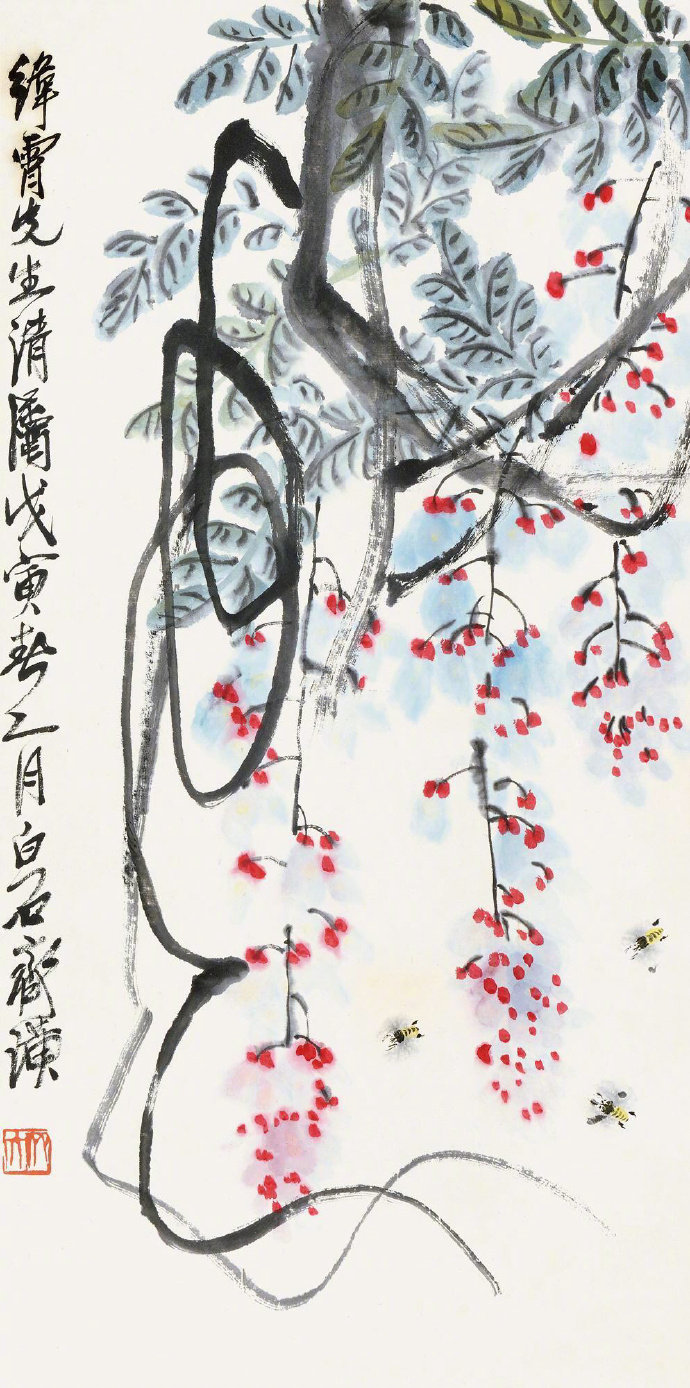 緯霄先生清屬戊寅春二月白石齊璜